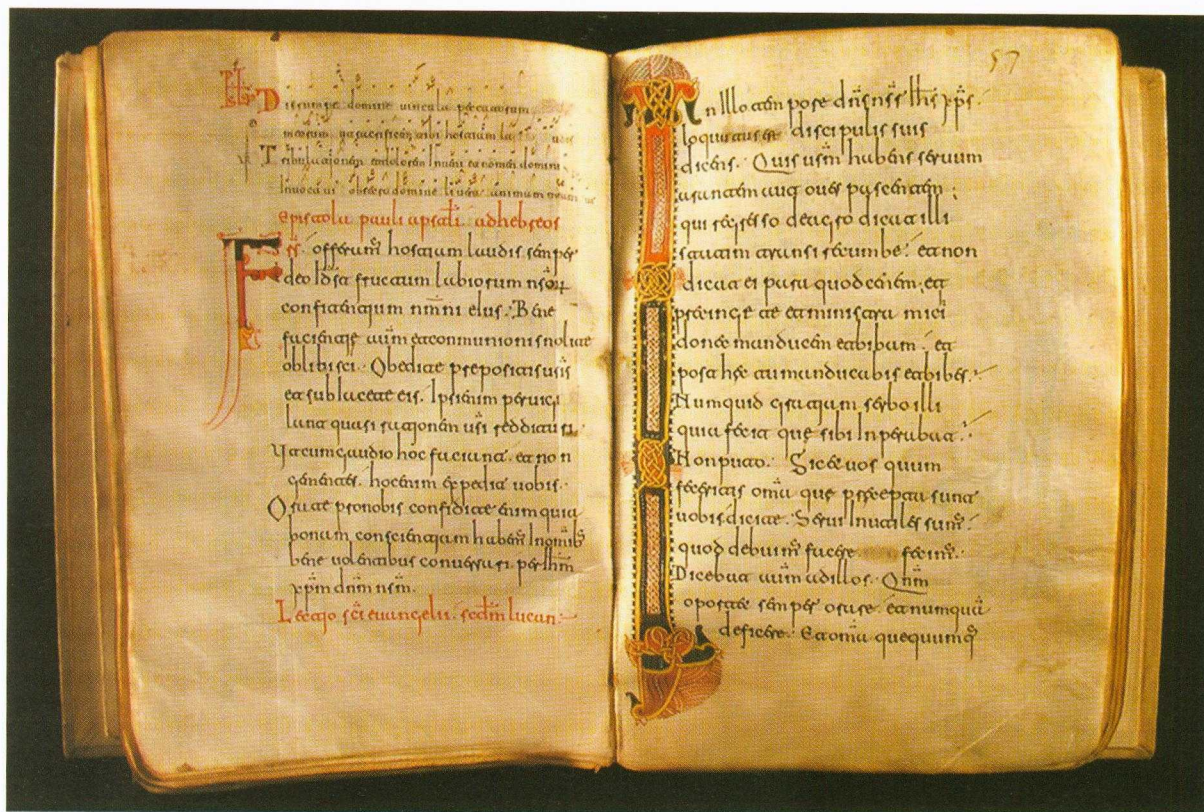 Dirrumpe domine uincula peccatorum
meorum ut sacrificem tibi hostiam laudis
Tribulationem et dolorem Inueni et nomen domini
Inuocaui obsecro domine libera animam meam
Epistola pauli apstli adhebreos
Frs. offerums hostiam laudis semper
deo Id est fructum labiorum nsor
confitentium nmni eius. Bene
facientie autm et communionis nolite
oblibisci. Obedite prepositis usis
et sublacete eis. Ipsi enim peruici
lant quasi rationem usi reddituri.
Ut cum gaudio hoc faciant. et non
gementes. hoc enim expedit uobis.
Orate pro nobis confidite enim quia
bonam conscientiam habems In omnibs
bene uolentibus conuersari. per Ihm
xpm dnm nsm.
Lectio sci euangelii. scdm lucan
57
In Illo tempore dns nss Ihs xps
loquutus est discipulis suis
dicens. Quis usm habens seruum
arantem aut oues pascentem
qui regresso de agro dicat illi
statim transi recumbe. et non
dicat ei para quod cenem. et
precinge te et ministra mici
donec manducem et bibam. et
post hec tu manducabis et bibes.
Numquid gratiam serbo illi
quia fecit que sibi Inperabat.
Non puto. Sic et vos quum
feceritis omnia que precepta sunt
uobis dicite. Serui Inutiles sums
quod debuims facere fecims.
Dicebat autm ad illos. Qnm
oportet semper orare. et numquam
deficere. Et omnia quequumqs